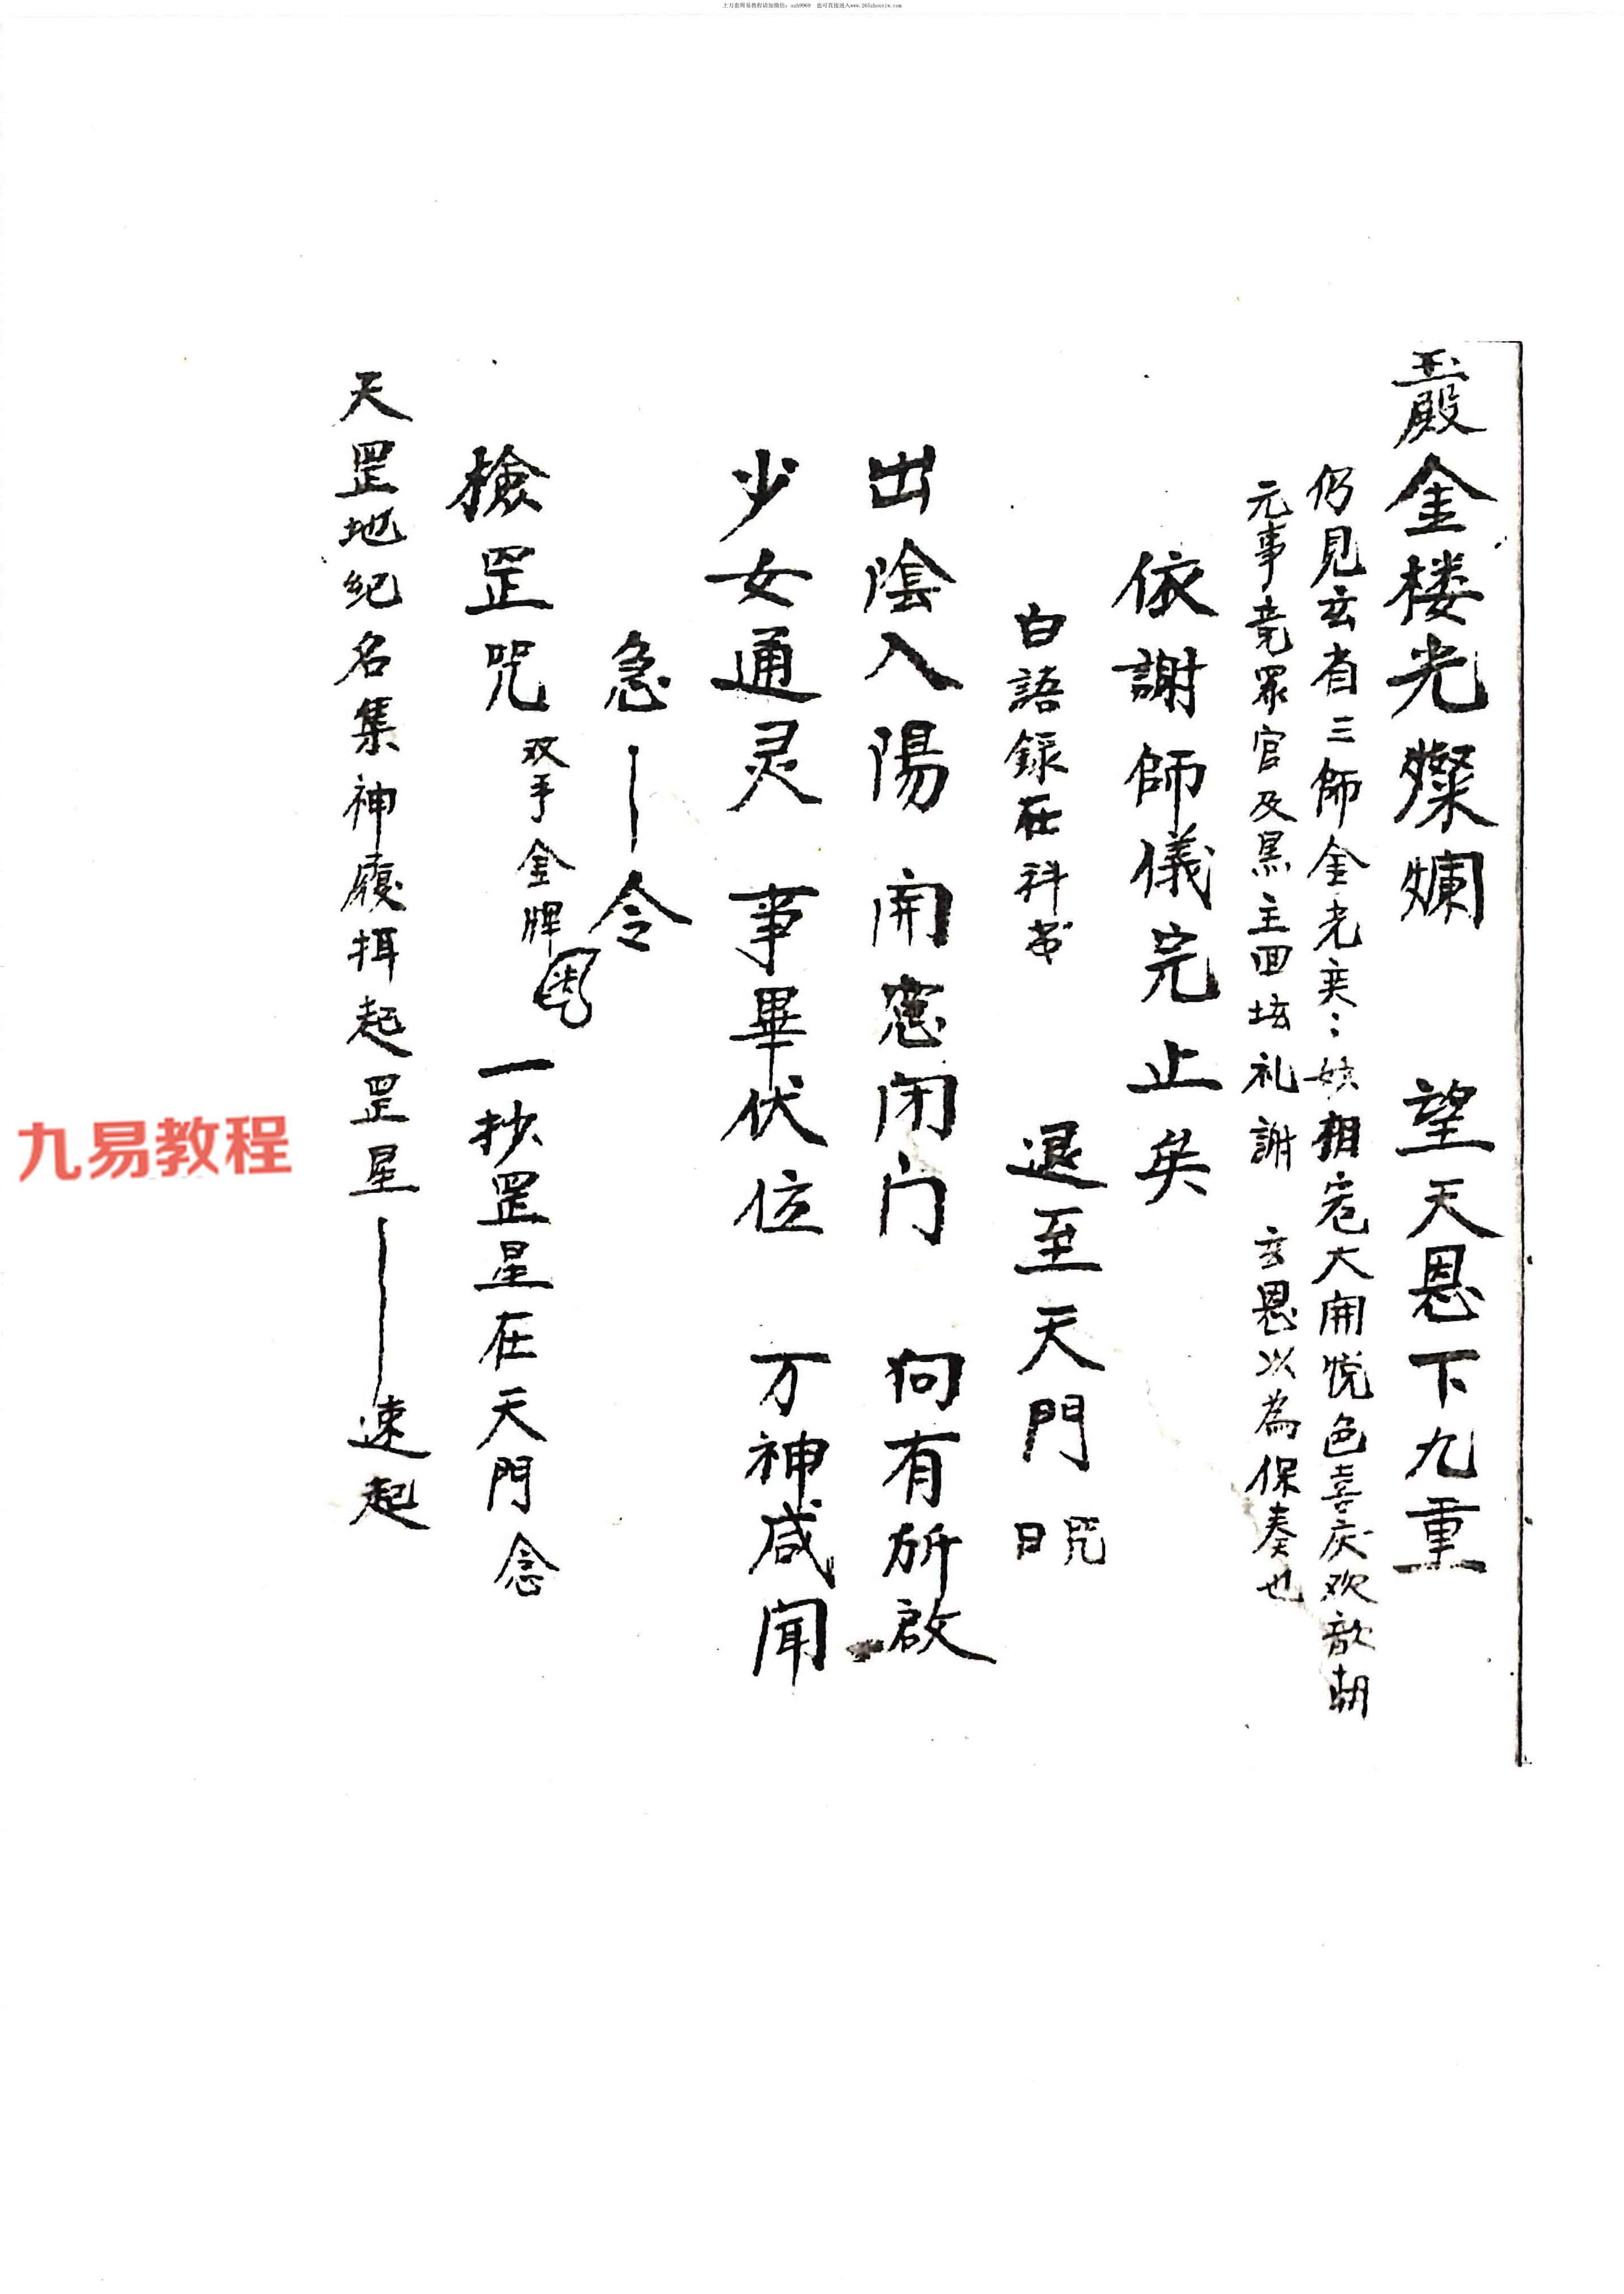 上万套周易教程请加微信：szh9969 也可直接进入www.265zhouyiw.com
玉殿金楼光燦爛 望天恩下九重
仍見玄省三師金光奕々 相 大開悦色喜庆欢歆朝
元事竟眾官及黑主回坛礼謝 玄恩以為保奏也
依謝師儀完止矣
白語録在科书 退至天門咒曰
出陰入陽 開窓闭门 向有所啟
少女通灵 事畢伏位 万神咸聞
急令
檢罡咒 双手金牌 一抄罡星在天門念
天罡地紀名集神 起罡星 速起
九易教程